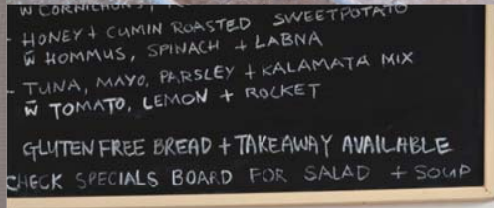 W CORNICHONS
- HONEY + CUMIN ROASTED SWEETPOTATO
W̄ HOMMUS, SPINACH + LABNA
- TUNA, MAYO, PARSLEY + KALAMATA MIX
W̄ TOMATO, LEMON + ROCKET
GLUTEN FREE BREAD + TAKEAWAY AVAILABLE
CHECK SPECIALS BOARD FOR SALAD + SOUP